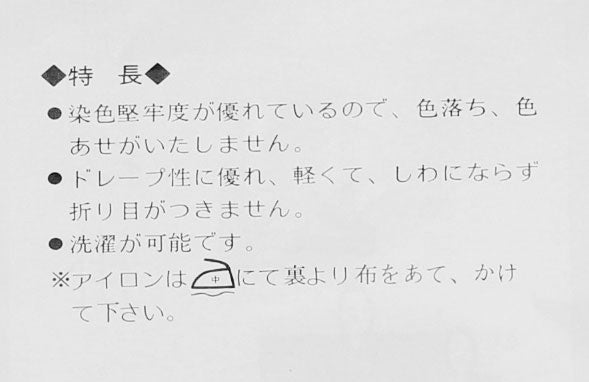 ◆特 長◆
●染色堅牢度が優れているので、色落ち、色
あせがいたしません。
●ドレープ性に優れ、軽くて、しわにならず
折り目がつきません。
●洗濯が可能です。
※アイロンは中にて裏より布をあて、かけ
て下さい。